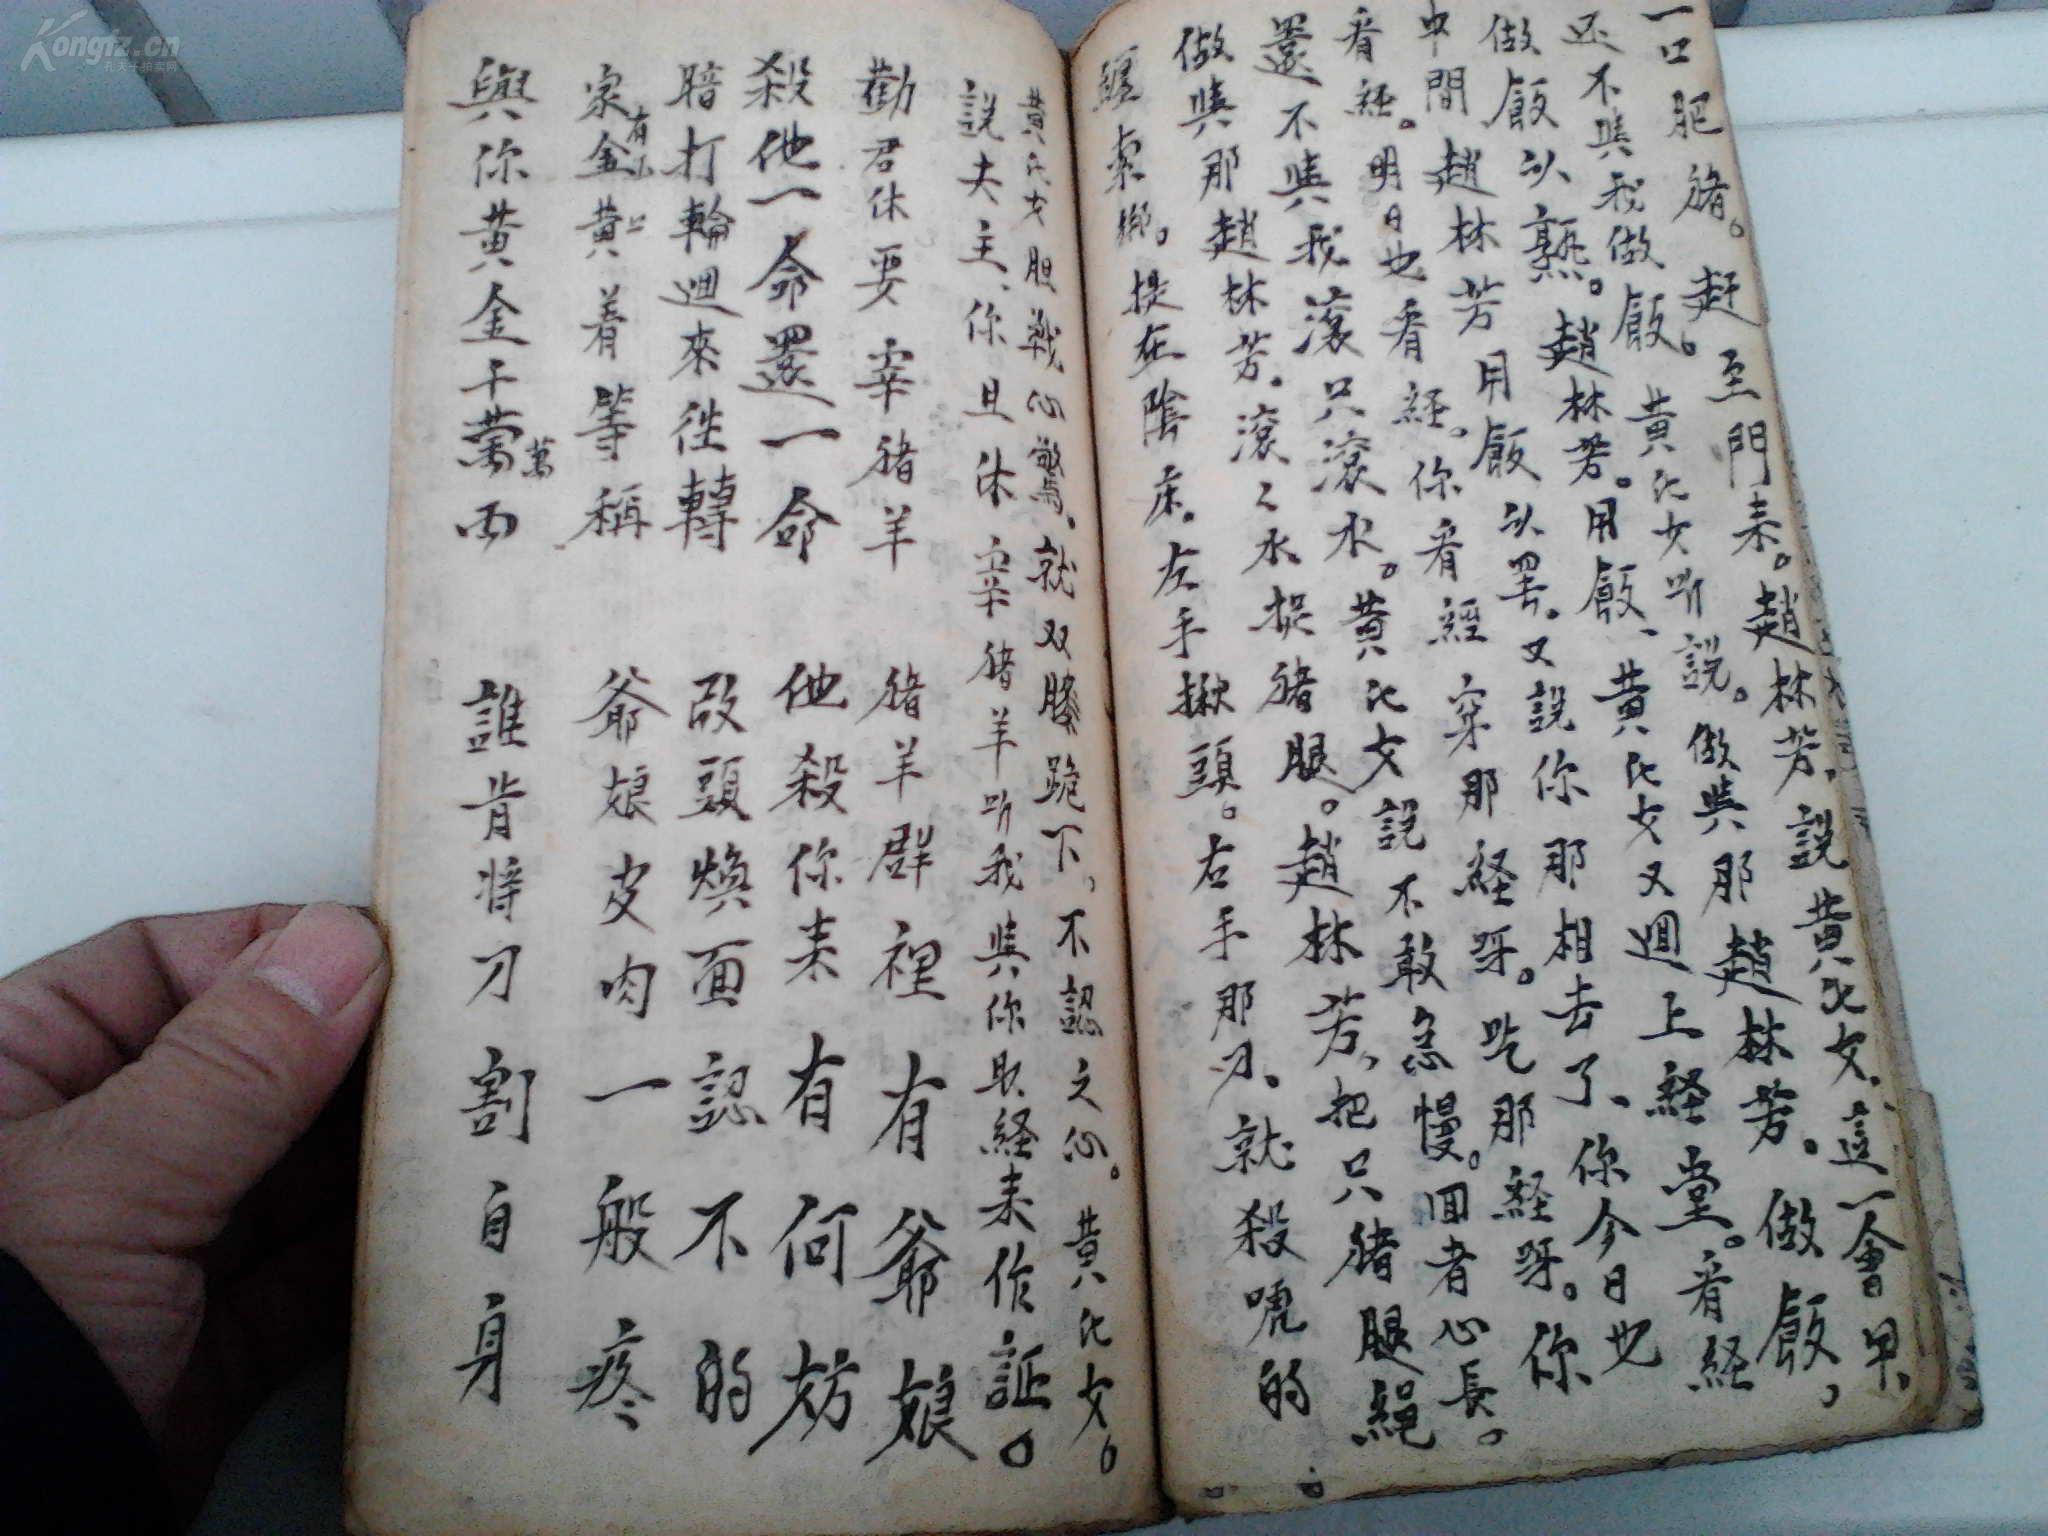 一口肥猪。赶至門来。趙林芳、說黄氏女、這一會早、
还不與我做飯。黄氏女听說。做與那趙林芳。做飯、
做飯以熟。趙林芳。用飯、黄氏女又廻上経堂。看経
中間趙林芳用飯以罢。又說你那相去了、你今日也
看経。明日也看経。你看經穿那経呀。吃那経呀。你
還不與我滾只滾水。黄氏女說不敢急慢。回者心長。
做與那趙林芳。滾之水捉猪腿。趙林芳、把只猪腿繩
經索綁。捉在陰床。左手揪頭。右手那刀、就殺唬的
黄氏女胆戰心驚。就双膝跪下、不認之心。黄氏女。
說夫主、你且休宰猪羊听我與你取経来作証。
勸君休要宰猪羊 猪羊群裡有爺娘
殺他一命還一命 他殺你来有何妨
暗打輪廻來往轉 改頭煥面不認的
家有金黄着等稱 爺娘皮肉一般疼
與你黄金千萬兩 誰肯将刀割自身
萬
Kongfz.cn
孔夫子拍卖网